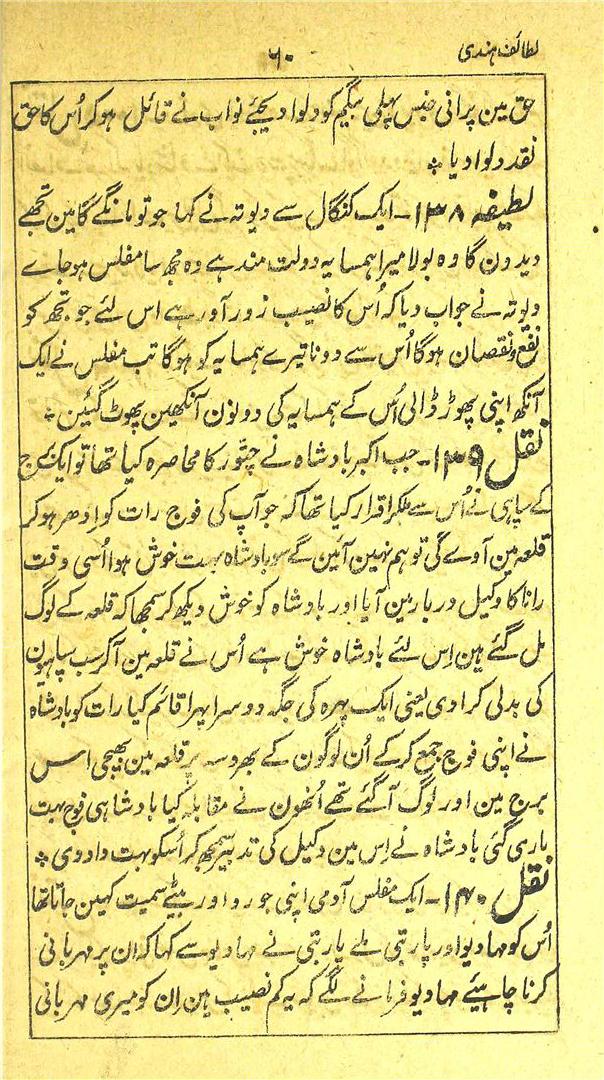 لطائف ہندی
٦٠
حق مین پرانی جنس پہلی بیگم کو دلوا دیجئے نواب نے قائل ہو کر اُس کا حق
نقد دلوا دیا ٭
لطیفہ ١٣٨ ۔ ایک کنگال سے دیوتہ نے کہا جو تو مانگے گا مین تجھے
دیدون گا وہ بولا میرا ہمسایہ دولت مند ہے وہ مجھ سا مفلس ہو جاے
دیوتہ نے جواب دیا کہ اُس کا نصیب زور آور ہے اس لئے جو تجھ کو
نفع و نقصان ہوگا اُس سے دونا تیرے ہمسایہ کو ہوگا تب مفلس نے ایک
آنکھ اپنی پھوڑ ڈالی اُس کے ہمسایہ کی دونون آنکھین پھوٹ گئین ٭
نقل ١٣٩ ۔ جب اکبر بادشاہ نے چتّور کا محاصرہ کیا تھا تو ایک برج
کے سپاہی نے اُس سے ملکر اقرار کیا تھا کہ جو آپ کی فوج رات کو ادھر ہو کر
قلعہ مین آوے گی تو ہم نہین آئین گے سو بادشاہ بہت خوش ہوا اُسی وقت
رانا کا وکیل دربار مین آیا اور بادشاہ کو خوش دیکھ کر سمجھا کہ قلعہ کے لوگ
مل گئے ہین اِس لئے بادشاہ خوش ہے اُس نے قلعہ مین آکر سب سپاہیون
کی بدلی کرا دی یعنی ایک پہرہ کی جگہ دوسرا پہرا قائم کیا رات کو بادشاہ
نے اپنی فوج جمع کر کے اُن لوگون کے بھروسہ پر قلعہ مین بھیجی اس
برج مین اور لوگ آ گئے تھے اُنھون نے مقابلہ کیا بادشاہی فوج بہت
ماری گئی بادشاہ نے اِس مین وکیل کی تدبیر سمجھ کر اُسکو بہت داد دی ٭
نقل ١٤٠ ۔ ایک مفلس آدمی اپنی جورو اور بیٹے سمیت کہین جاتا تھا
اُس کو مہادیو اور پاربتی ملے پاربتی نے مہادیو سے کہا کہ ان پر مہربانی
کرنا چاہیئے مہادیو فرمانے لگے کہ یہ کم نصیب ہین اِن کو میری مہربانی